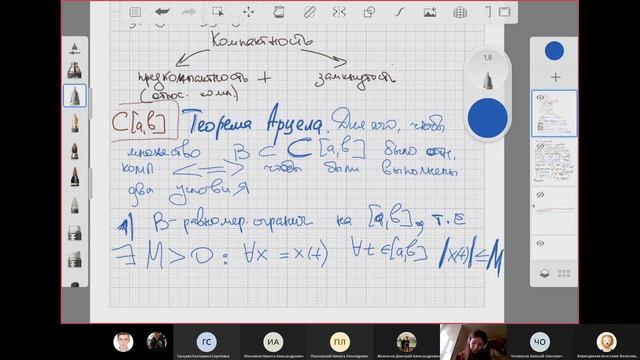 Компактность
предкомпактность + замкнутость
(относ. комп)
C[a,b] Теорема Арцела. Для того, чтобы
множество B ⊂ C[a,b] было отн.
комп <=> чтобы были выполнены
два условия
1) B - равномер. огранич на [a,b], т.е
∃ M > 0 : ∀x = x(t) ∀t ∈ [a,b] |x(t)| ≤ M
1,8
ГС
ИА
ПЛ
ЧО